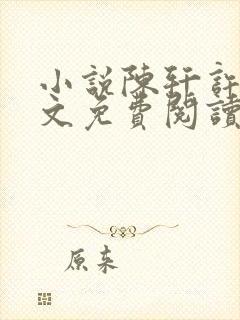 小說陳軒許
文免費閱讀
原來